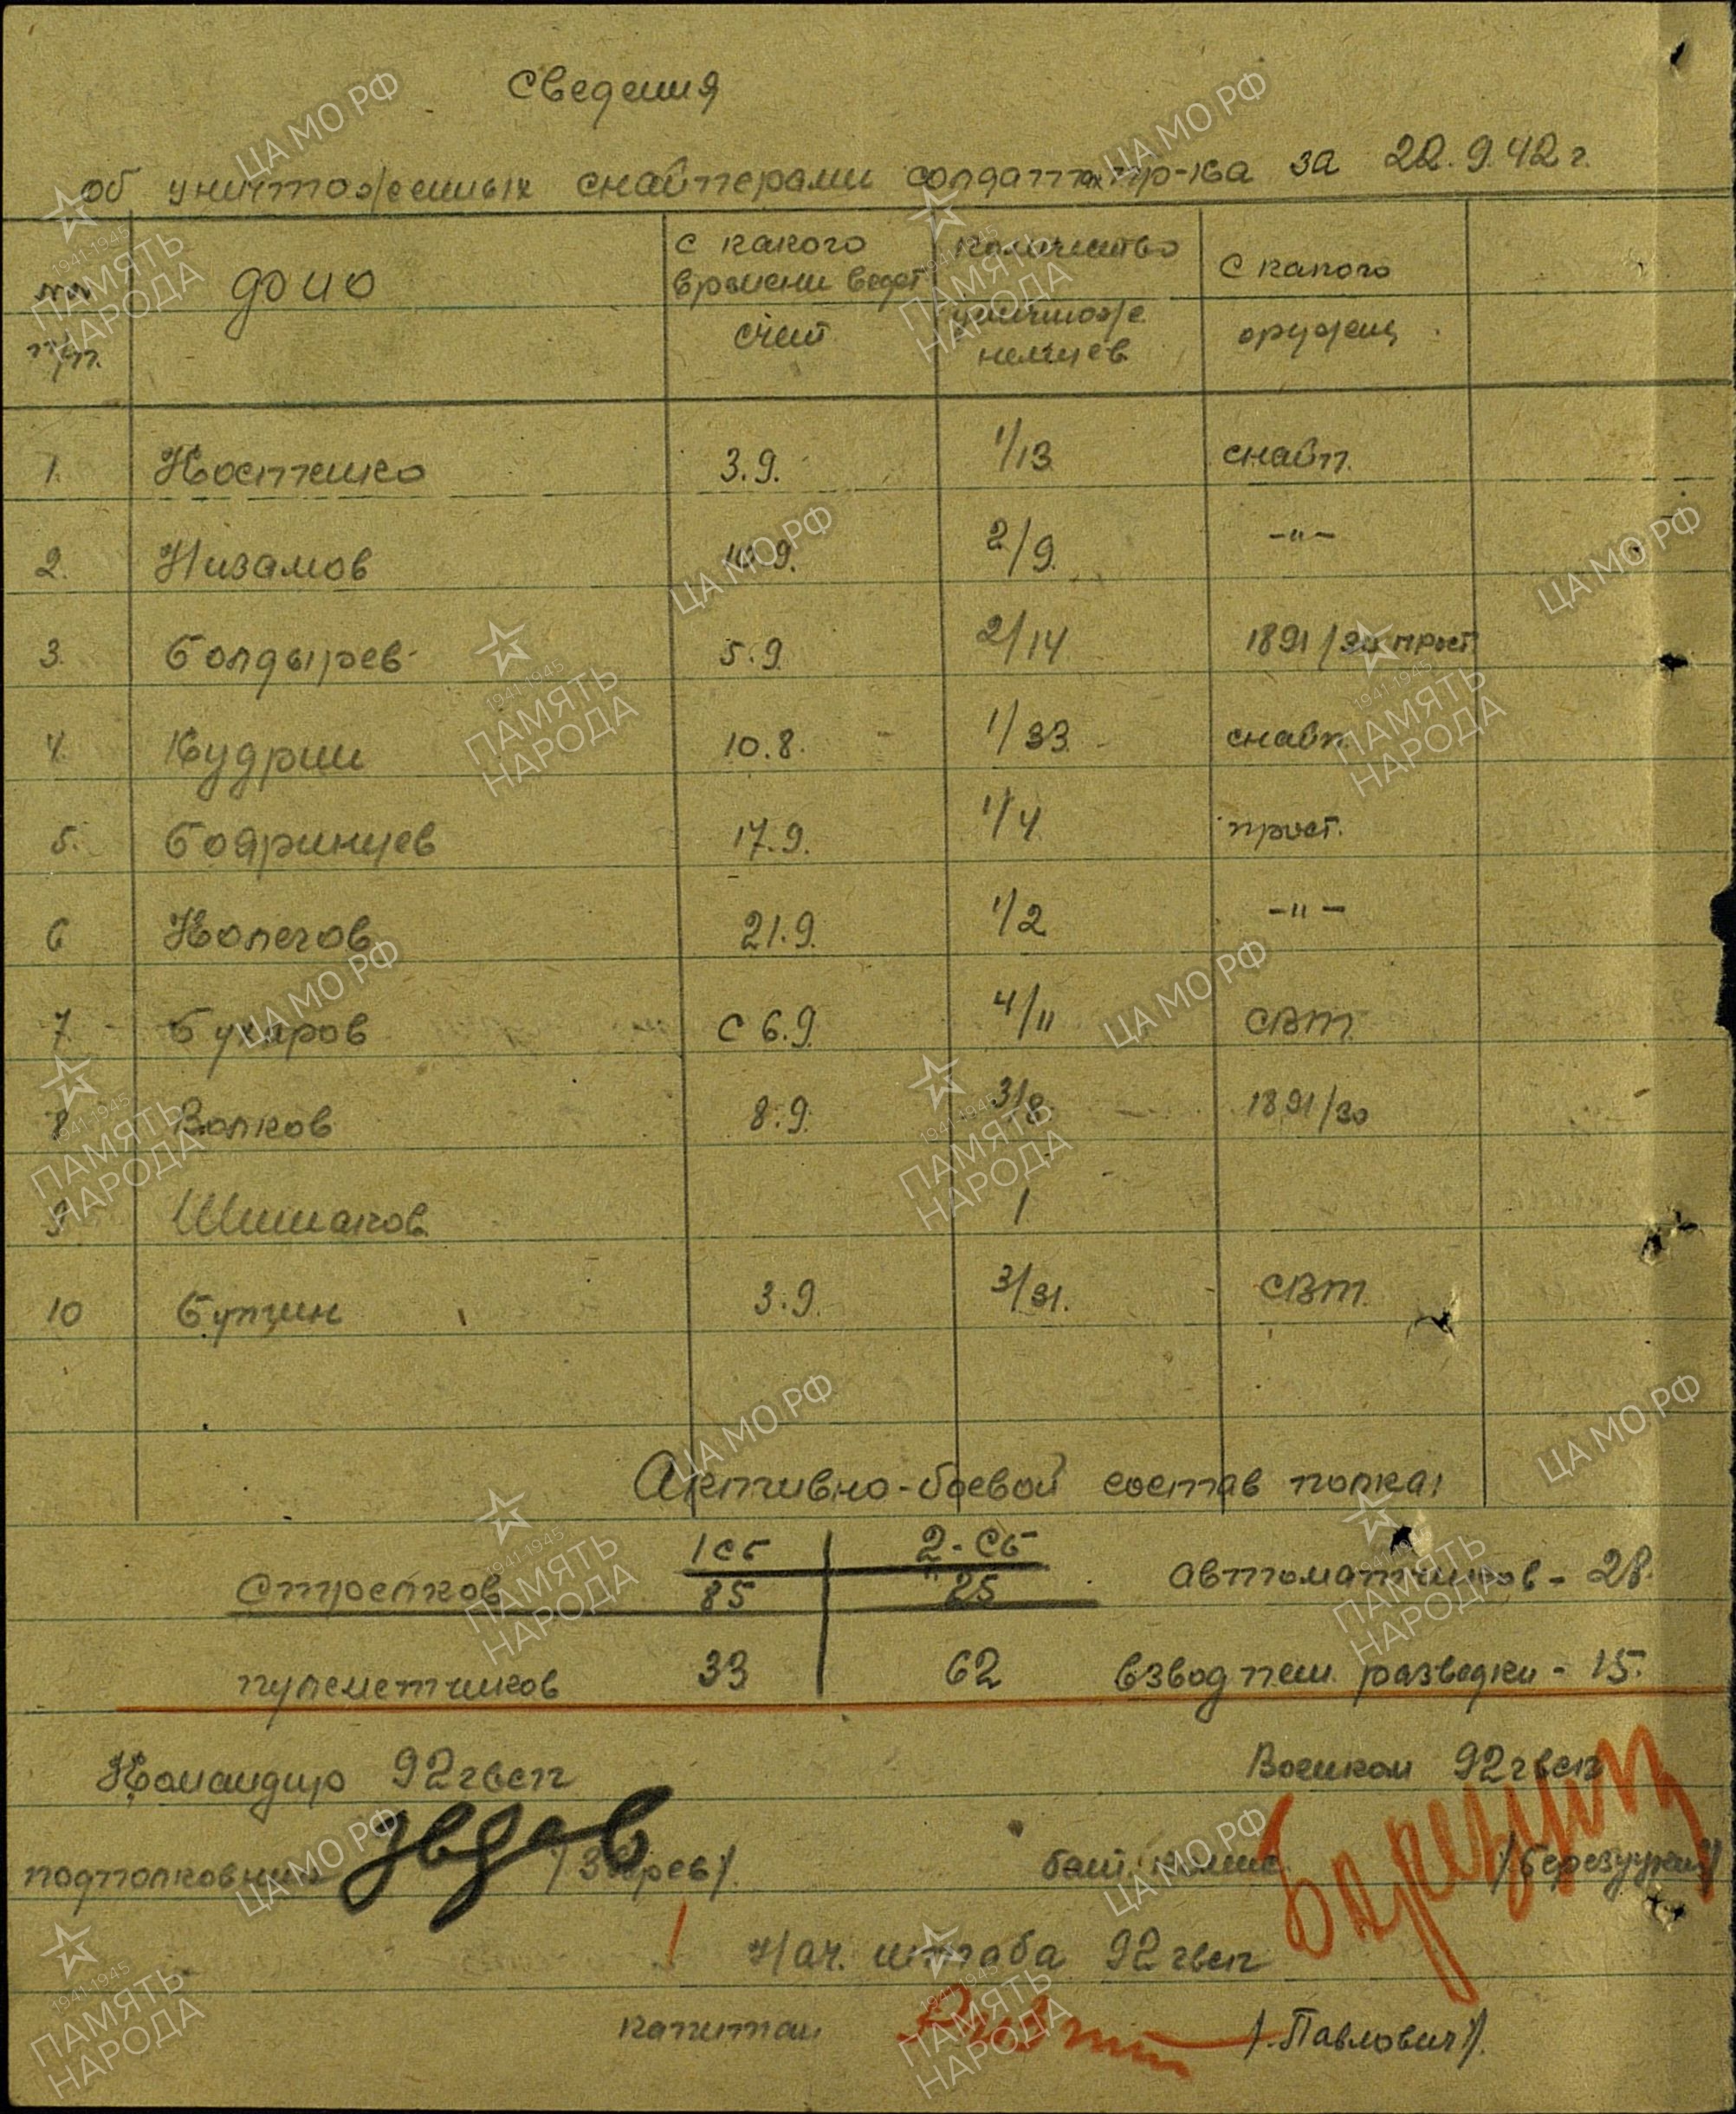 Сведения
об уничтоженных снайперами солдатах пр-ка за 22.9.42 г.
№№ п/п. фио с какого времени ведет счет количество уничтоже немцев с какого оружия
1. Костенко 3.9. 1/13 снайп.
2. Низамов 10.9. 2/9. -"-
3. Болдырев 5.9. 2/14 1891/30 прост.
4. Кудрин 10.8. 1/33. снайп.
5. Бояринцев 17.9. 1/4 прост.
6 Колегов 21.9. 1/2 -"-
7. Бухаров с 6.9. 4/11 СВТ.
8 Волков 8.9. 3/8. 1891/30
9 Шишаков 1
10 Бутин 3.9. 3/31. СВТ.
Активно-боевой состав полка:
1 сб 2-сб
Стрелков 85 25 автоматчиков - 28.
пулеметчиков 33 62 взвод пеш. разведки - 15.
Командир 92 гвсп Военком 92 гвсп
подполковник /. бат. комис.
Нач. штаба 92 гвсп
капитан /.Павлович/.
ЦА МО РФ
1941-1945
ПАМЯТЬ
НАРОДА